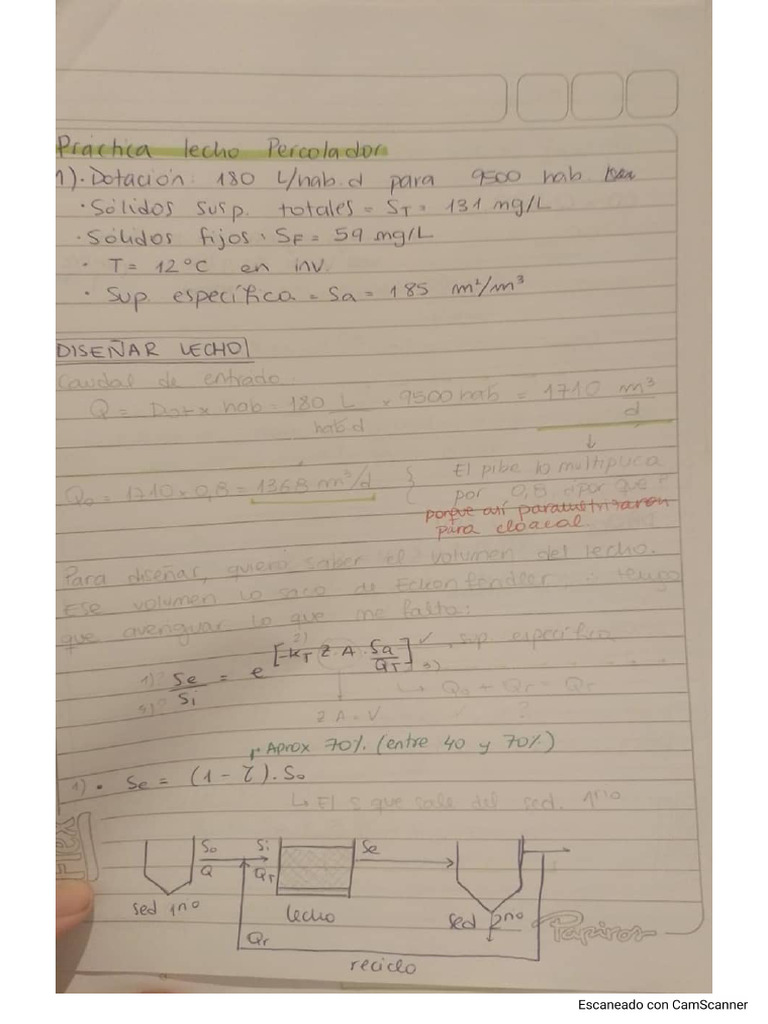 Práctica lecho Percolador
1). Dotación: 180 L/hab.d para 9500 hab
· Sólidos susp. totales = ST = 131 mg/L
· Sólidos fijos = SF = 59 mg/L
· T = 12°C en inv.
· Sup. específica = Sa = 185 m²/m³
DISEÑAR LECHO
Caudal de entrada
Q = Dot × hab = 180 L/hab.d × 9500 hab = 1710 m³/d
↓
Q₀ = 1710 × 0,8 = 1368 m³/d { El pibe lo multiplica
por 0,8 ¿por qué?
porque así parametrizaron
para cloacal
Para diseñar, quiero saber el volumen del lecho.
Ese volumen lo saco de Eckenfendler, ∴ tengo
que averiguar lo que me falta:
1) Se/Si = e^[-kT Z A · Sa/QT] ✓ sup. específica
2)
3)
↳ Q₀ + Qr = QT
Z A = V
?
Aprox 70%. (entre 40 y 70%)
1) · Se = (1 - τ) . S₀
↳ El S que sale del sed. 1rio
S₀ Si Se
Q QT
sed 1rio lecho sed 2rio
Papiros
Qr
reciclo
Escaneado con CamScanner